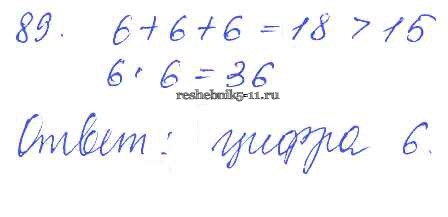 89. 6+6+6=18>15
6·6=36
reshebnik5-11.ru
Ответ: цифра 6.